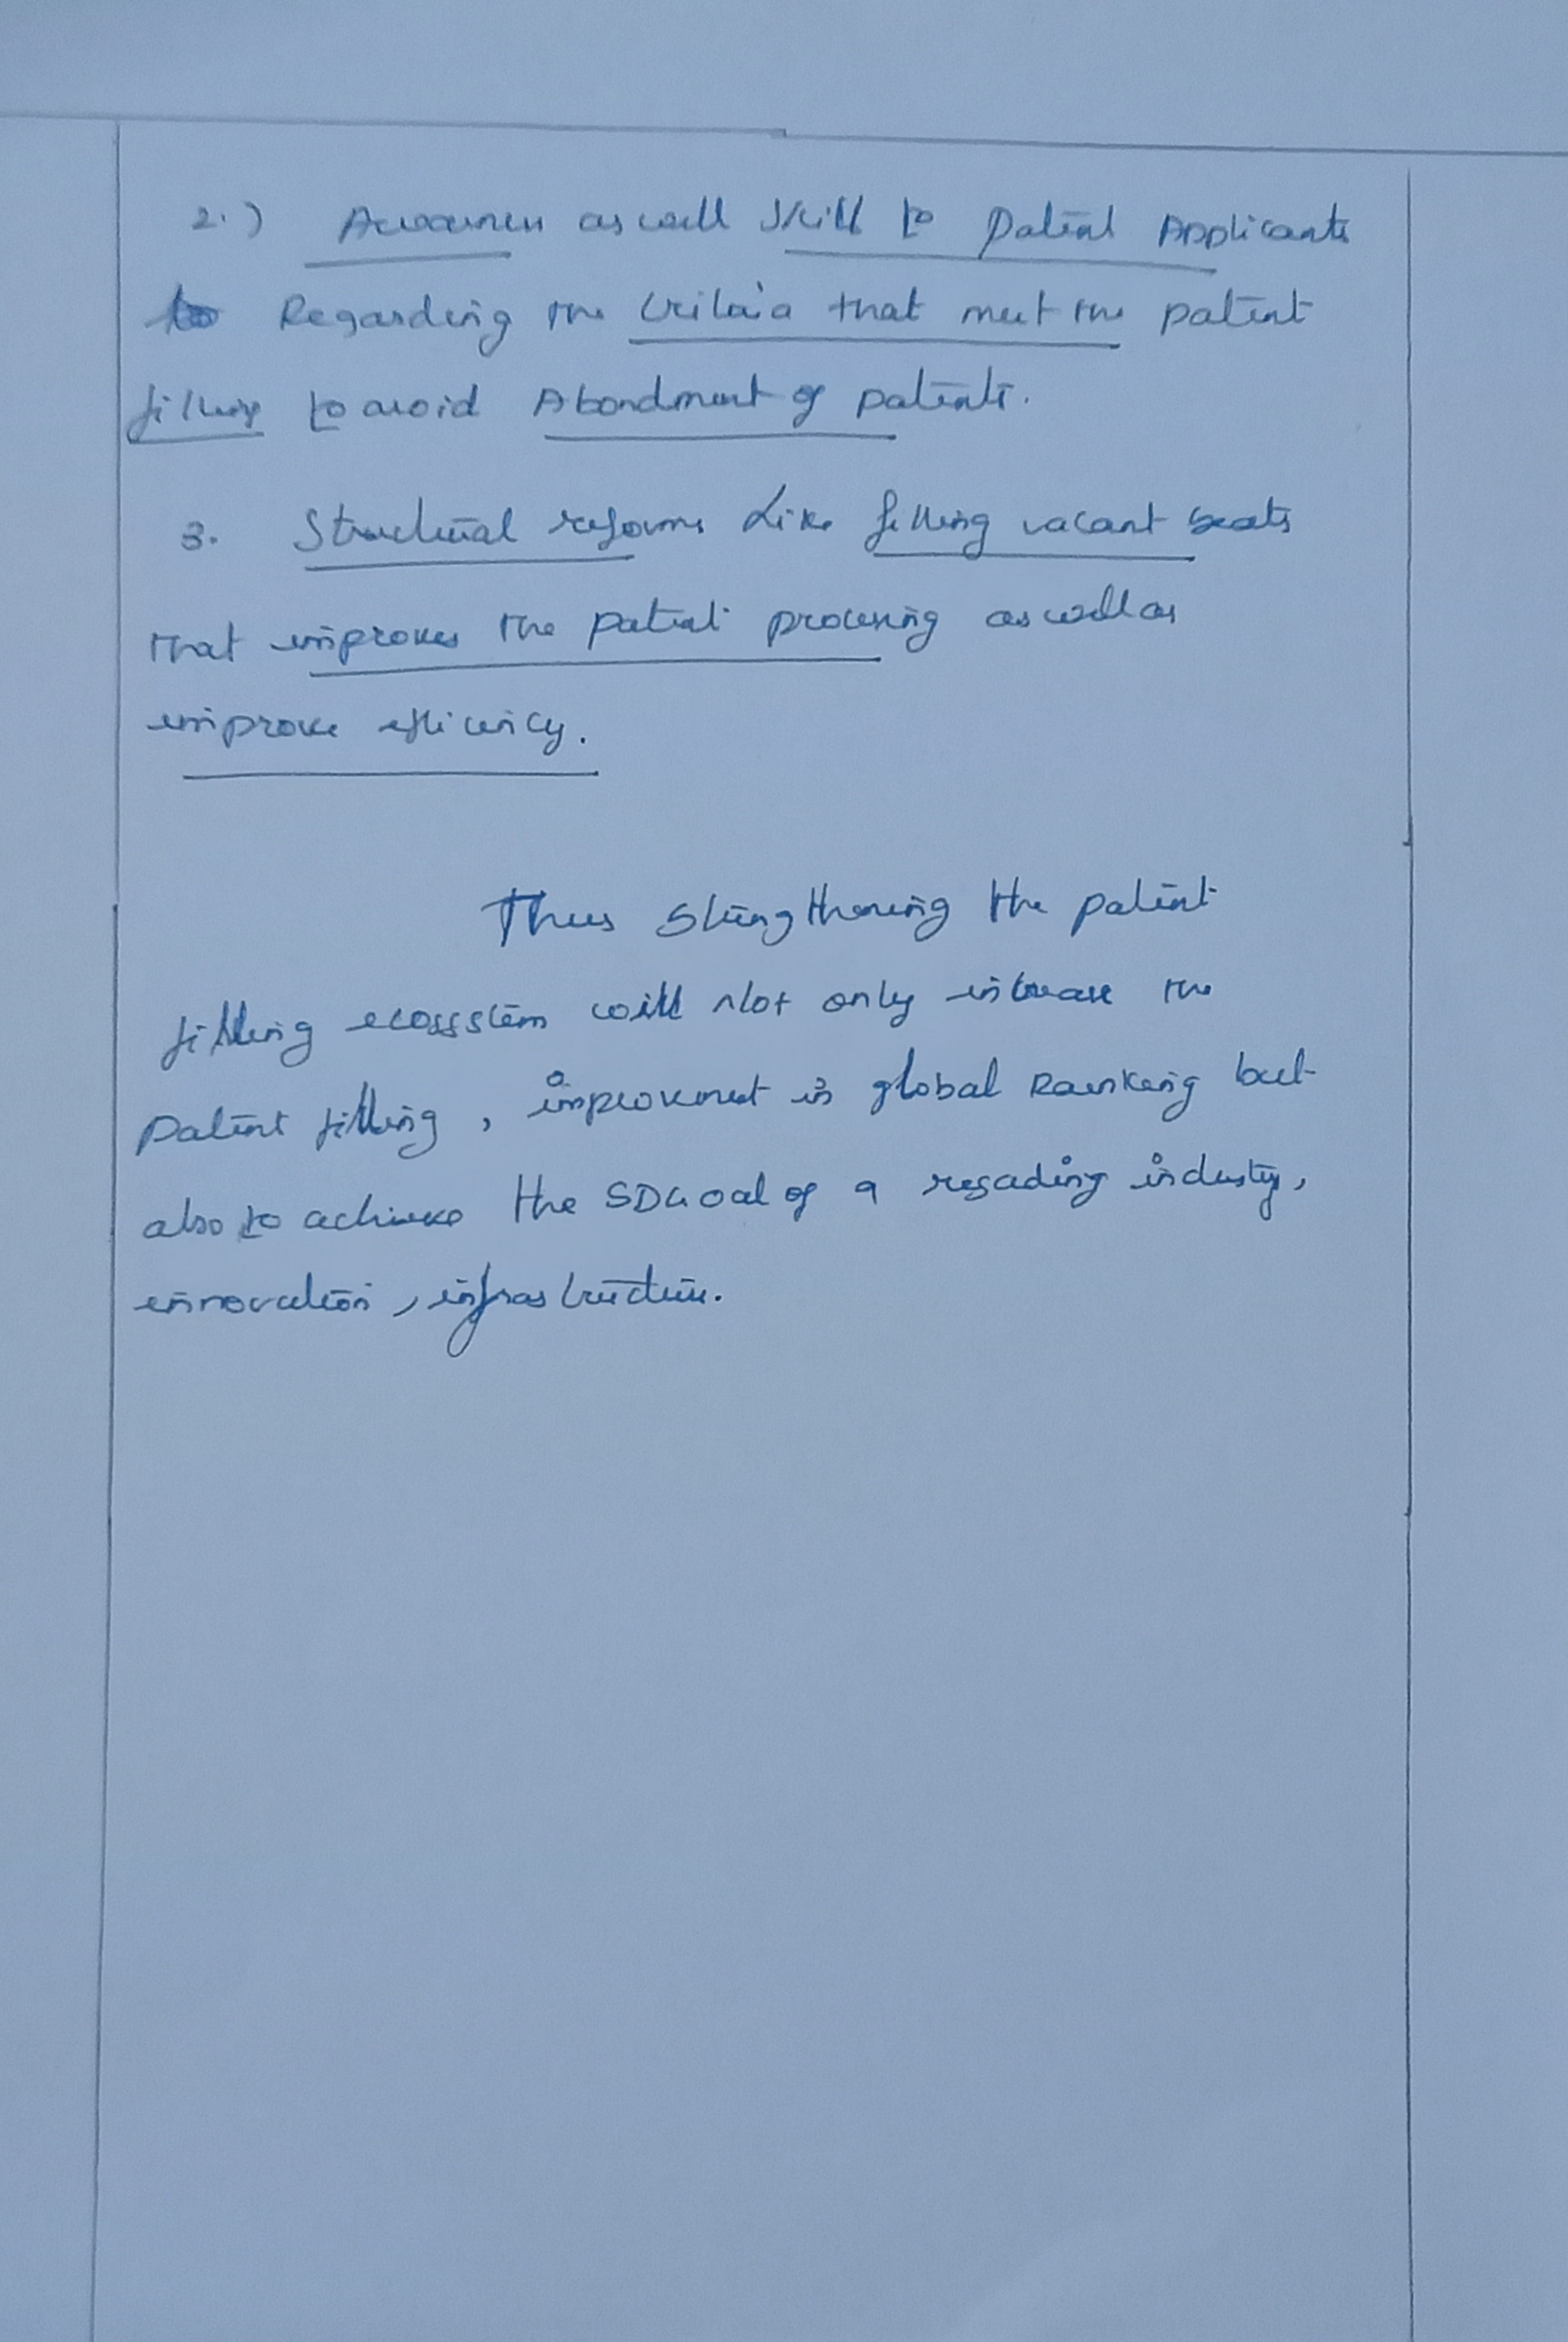 2.) Awarness as well skill to patent Applicants
to Regarding the criteria that meet the patent
filling to avoid Abondment of patents.
3. Structural reforms like filling vacant seats
that improves the patent processing as well as
improve efficiency.
Thus Strengthening the patent
filling ecosystem will not only increase the
patent filling, improvment in global Ranking but
also to achieve the SDGoal of 9 regading industry,
innovation, infrastructure.